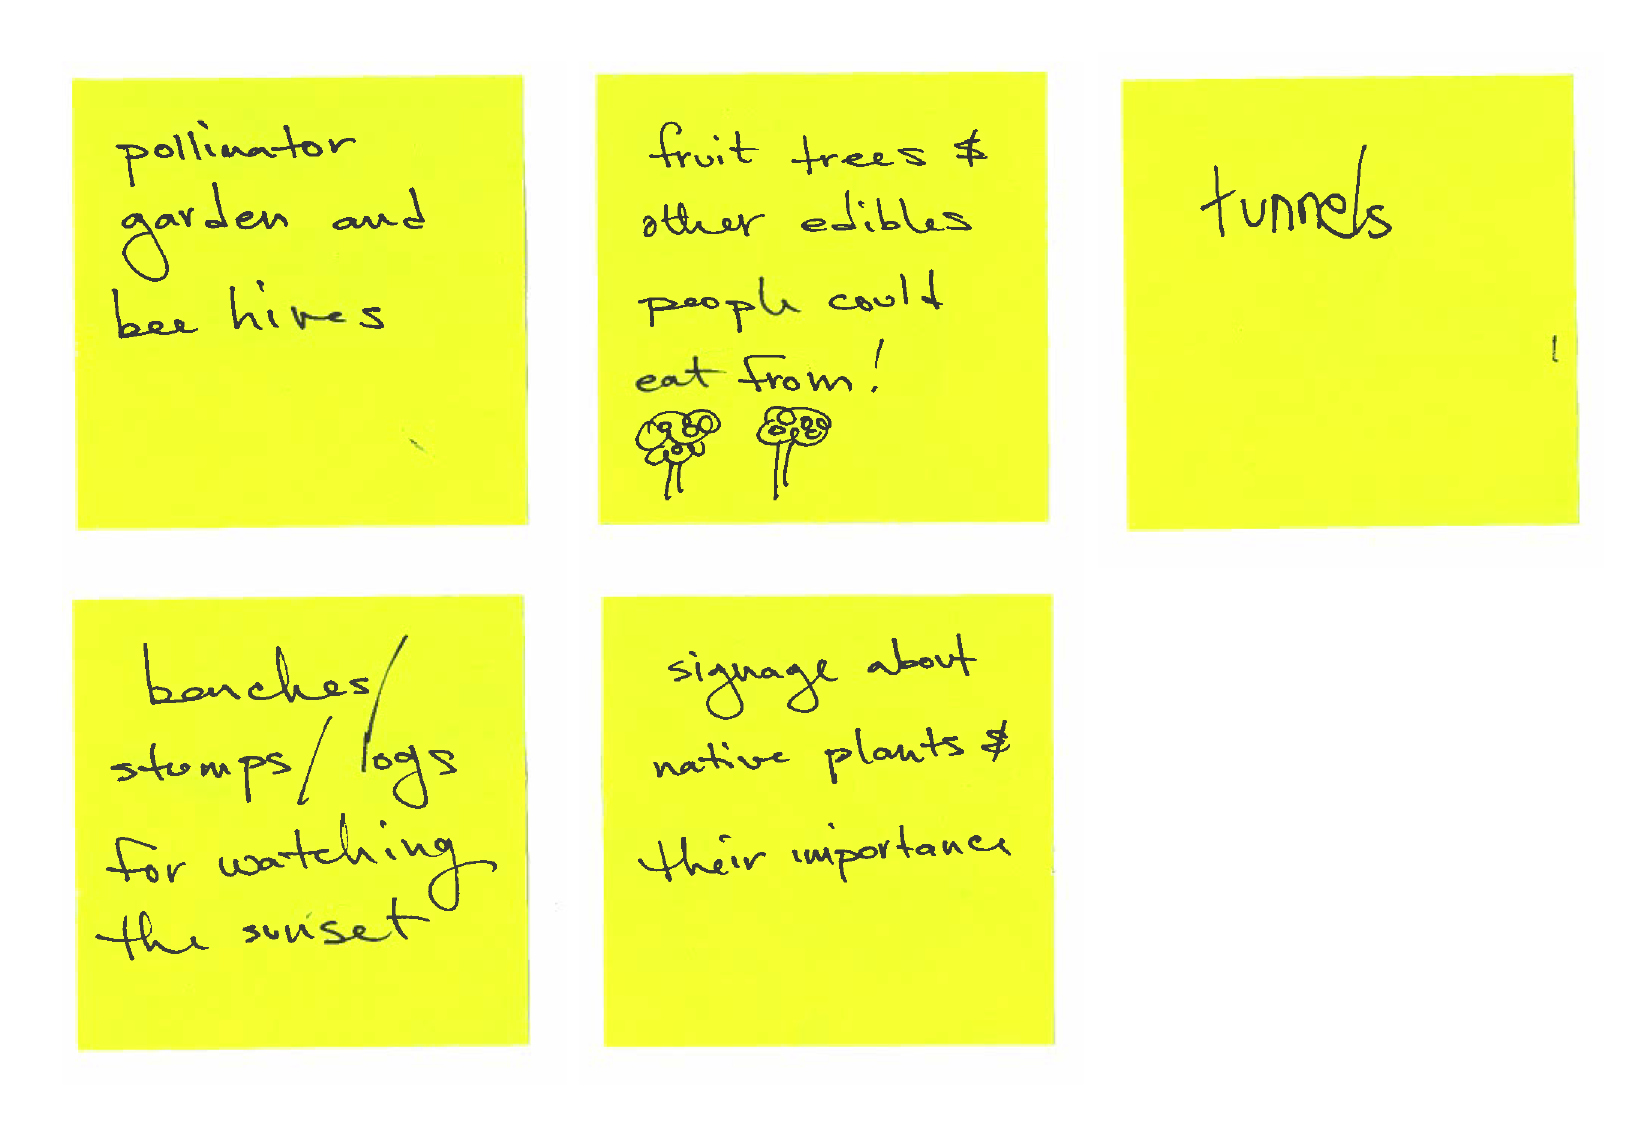 pollinator
garden and
bee hives
fruit trees &
other edibles
people could
eat from!
tunnels
benches/
stumps/logs
for watching
the sunset
signage about
native plants &
their importance